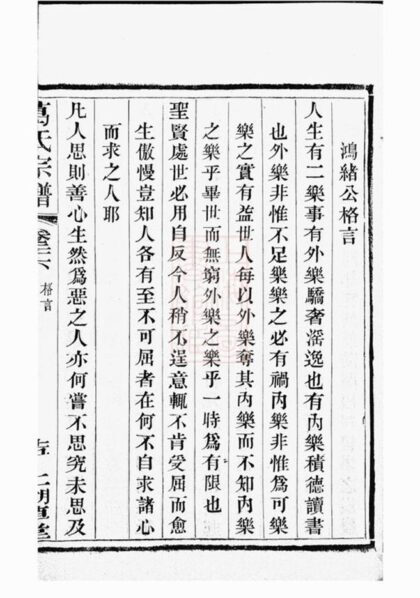 鴻緒公格言
人生有二樂事有外樂驕奢滛逸也有內樂積德讀書
也外樂非惟不足樂樂之必有禍內樂非惟爲可樂
樂之實有益世人每以外樂奪其內樂而不知內樂
之樂乎畢世而無窮外樂之樂乎一時爲有限也
聖賢處世必用自反今人稍不逞意輒不肯受屈而愈
生傲慢豈知人各有至不可屈者在何不自求諸心
而求之人耶
凡人思則善心生然爲惡之人亦何嘗不思究未思及
葛氏宗譜 卷三六 格言